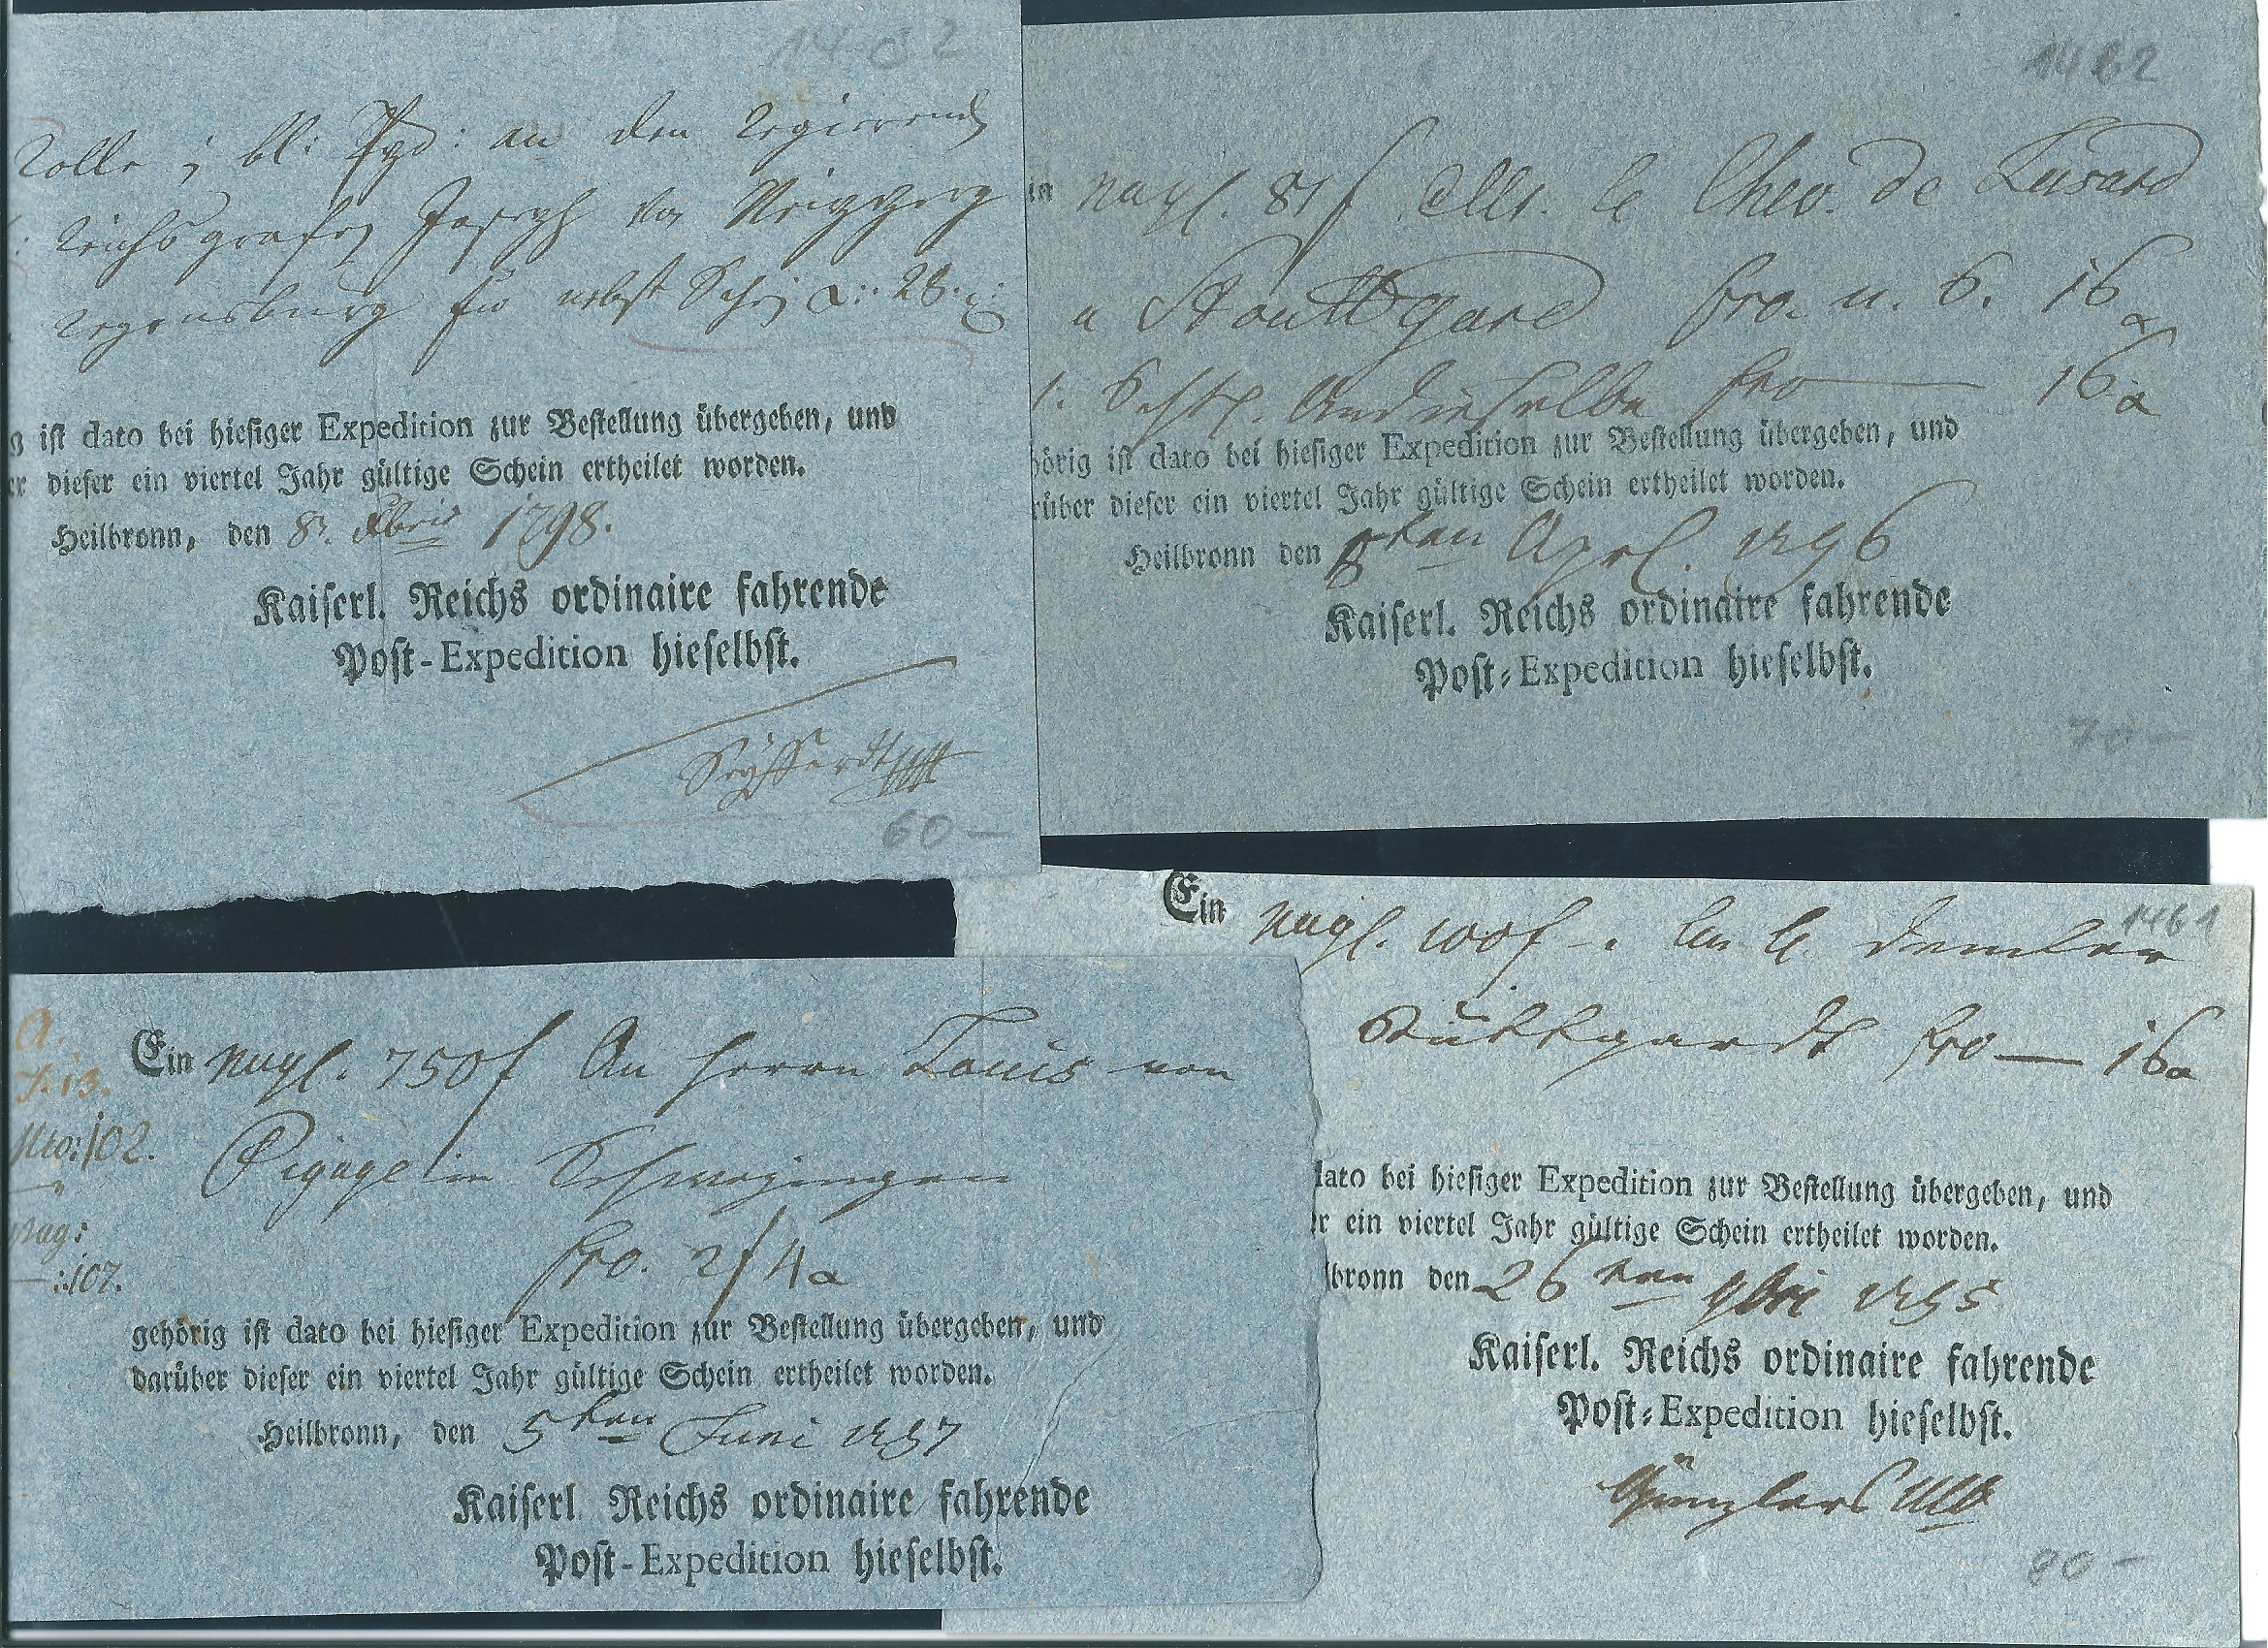 1462
Rolle j bl: an den regierend
Reichsgrafen Joseph von
Regensburg nebst Schein 28.
g ist dato bei hiesiger Expedition zur Bestellung übergeben, und
er dieser ein viertel Jahr gültige Schein ertheilet worden.
Heilbronn, den 8. Xbris 1798.
Kaiserl. Reichs ordinaire fahrende
Post-Expedition hieselbst.
60 —
1462
in 81 f Mr. le Chev. de
a Stouttgard fro. u. 6. 16
1. Andieselbe fro — 16
hörig ist dato bei hiesiger Expedition zur Bestellung übergeben, und
rüber dieser ein viertel Jahr gültige Schein ertheilet worden.
Heilbronn den 8ten Aprl. 1796
Kaiserl. Reichs ordinaire fahrende
Post-Expedition hieselbst.
70 —
A.
F. 13.
Nto: 102.
pag:
—:107.
Ein 750 f An Herrn Louis von
Pigage in Schwezingen
fro. 2 f 4
gehörig ist dato bei hiesiger Expedition zur Bestellung übergeben, und
darüber dieser ein viertel Jahr gültige Schein ertheilet worden.
Heilbronn, den 5ten Juni 1797
Kaiserl Reichs ordinaire fahrende
Post-Expedition hieselbst.
1461
Ein 100 f
Stuttgardt fro — 16
dato bei hiesiger Expedition zur Bestellung übergeben, und
er ein viertel Jahr gültige Schein ertheilet worden.
lbronn den 26ten 9bri 1795
Kaiserl. Reichs ordinaire fahrende
Post-Expedition hieselbst.
90 —